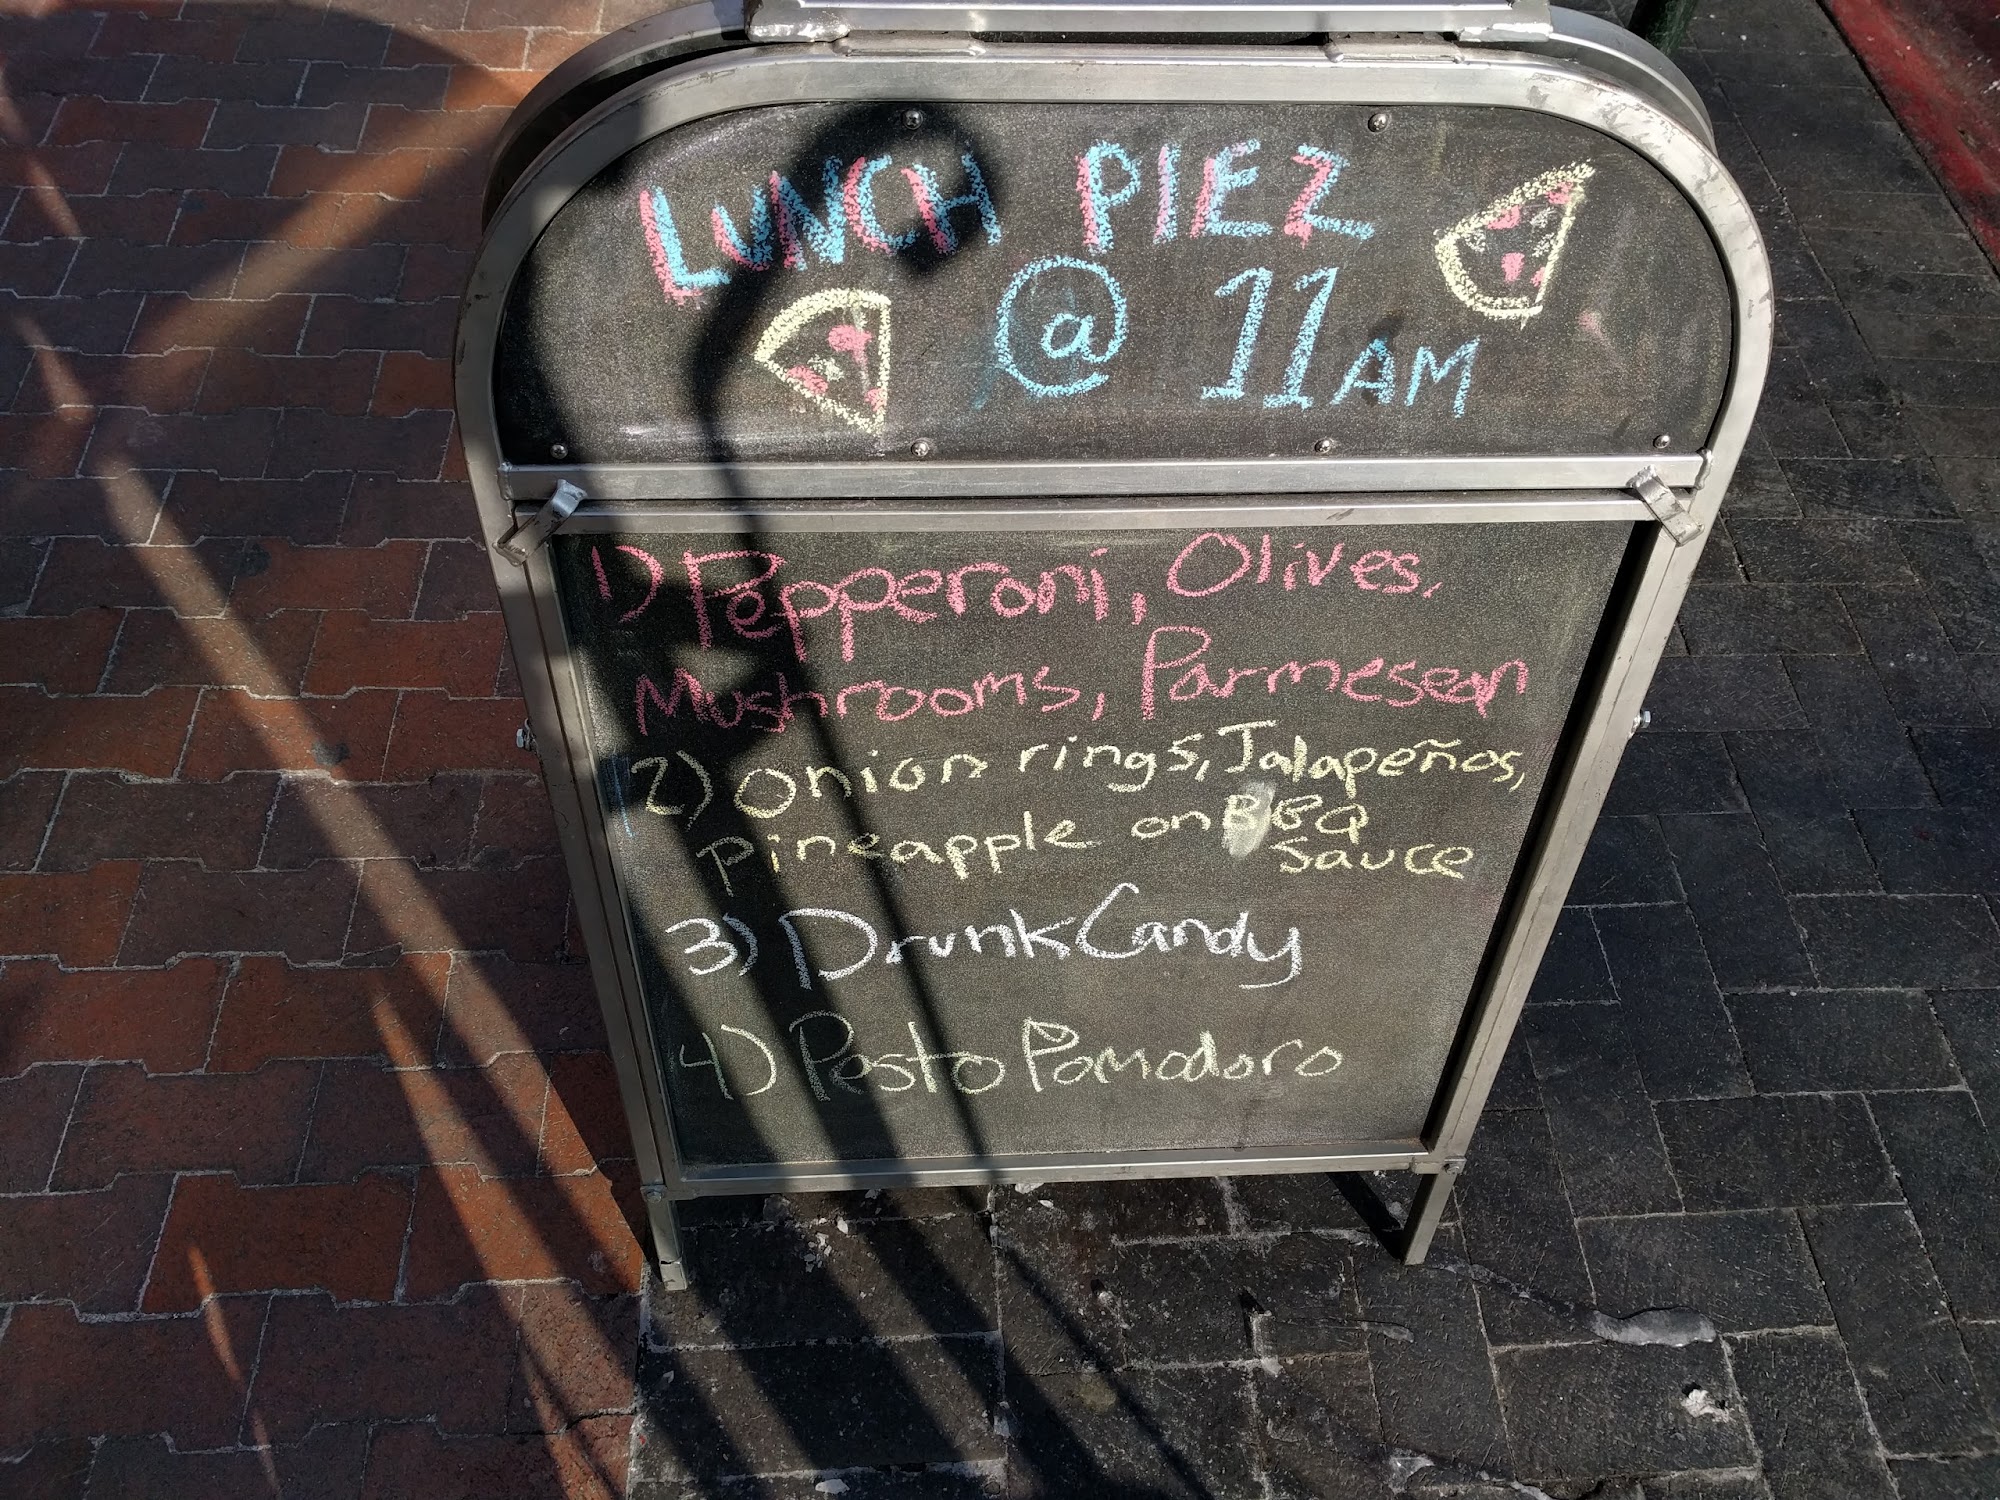 LUNCH PIEZ
@ 11AM
1) Pepperoni, Olives,
Mushrooms, Parmesean
2) Onion rings, Jalapeños,
pineapple on BBQ
sauce
3) Drunk Candy
4) Pesto Pomodoro